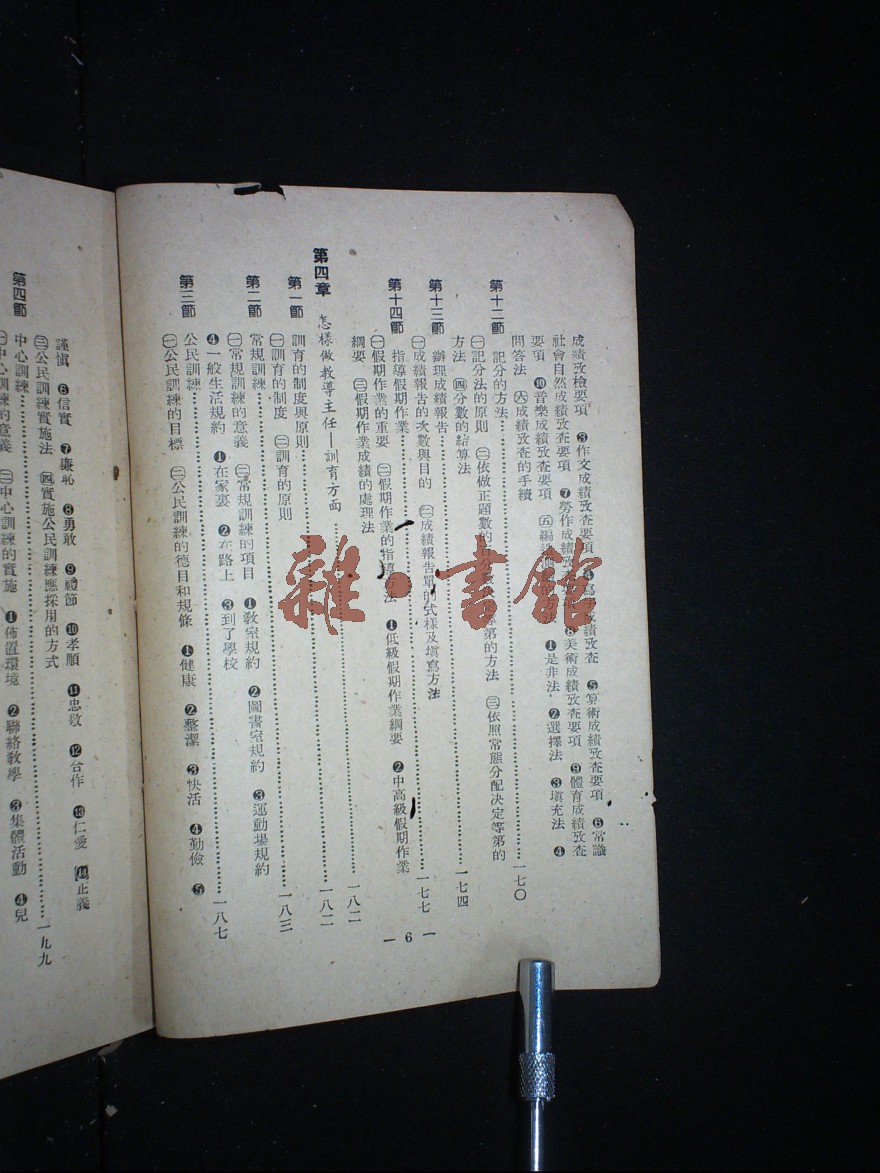 成績攷檢要項 ❸作文成績攷查要項 ❹寫 成績攷查 ❺算術成績攷查要項 ❻常識
社會自然成績攷查要項 ❼勞作成績攷 ❽美術成績攷查要項 ❾體育成績攷查
要項 ❿音樂成績攷查要項 ㊄編 方法 ❶是非法 ❷選擇法 ❸填充法 ❹
問答法 ㊅成績攷查的手續
第十二節 記分的方法…………一七〇
㊀記分法的原則 ㊁依做正題數的百分 等第的方法 ㊂依照常態分配決定等第的
方法 ㊃分數的結算法
第十三節 辦理成績報告…………一七四
㊀成績報告的次數與目的 ㊁成績報告單的式樣及填寫方法
第十四節 指導假期作業…………一七七
㊀假期作業的重要 ㊁假期作業的指導方法 ❶低級假期作業綱要 ❷中高級假期作業
綱要 ㊂假期作業成績的處理法
第四章 怎樣做教導主任—訓育方面…………一八二
第一節 訓育的制度與原則…………一八二
㊀訓育的制度 ㊁訓育的原則
第二節 常規訓練…………一八三
㊀常規訓練的意義 ㊁常規訓練的項目 ❶教室規約 ❷圖書室規約 ❸運動場規約
❹一般生活規約 ❶在家裏 ❷在路上 ❸到了學校
第三節 公民訓練…………一八七
㊀公民訓練的目標 ㊁公民訓練的德目和規條 ❶健康 ❷整潔 ❸快活 ❹勤儉 ❺
— 6 —
謹慎 ❻信實 ❼廉恥 ❽勇敢 ❾禮節 ❿孝順 ⓫忠敬 ⓬合作 ⓭仁愛 ⓮正義
㊂公民訓練實施法 ㊃實施公民訓練應採用的方式
第四節 中心訓練…………一九九
㊀中心訓練的意義 ㊁中心訓練的實施 ❶佈置環境 ❷聯絡教學 ❸集體活動 ❹兒
雜·書館